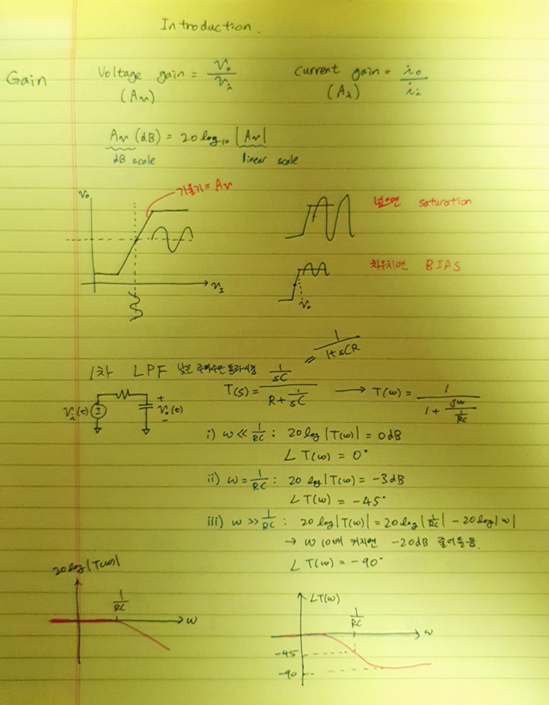 Introduction.
Gain
Voltage gain = Vo/Vi
Current gain = io/ii
(Av)
(Ai)
Av (dB) = 20 log10 |Av|
dB scale
linear scale
기울기 = Av
Vo
VI
넘으면 saturation
치우치면 BIAS
Vo
1차 LPF 낮은 주파수만 통과시킴
T(s) = (1/sC)/(R + 1/sC) = 1/(1+sCR) → T(ω) = 1/(1 + jω/(1/RC))
Vi(t)
+
Vo(t)
-
i) ω ≪ 1/RC : 20 log |T(ω)| = 0dB
∠T(ω) = 0°
ii) ω = 1/RC : 20 log |T(ω)| = -3dB
∠T(ω) = -45°
iii) ω ≫ 1/RC : 20 log |T(ω)| = 20 log |1/RC| - 20 log |ω|
→ ω 10배 커지면 -20dB 줄어듦
∠T(ω) = -90°
20 log |T(ω)|
1/RC
ω
∠T(ω)
1/RC
ω
-45
-90